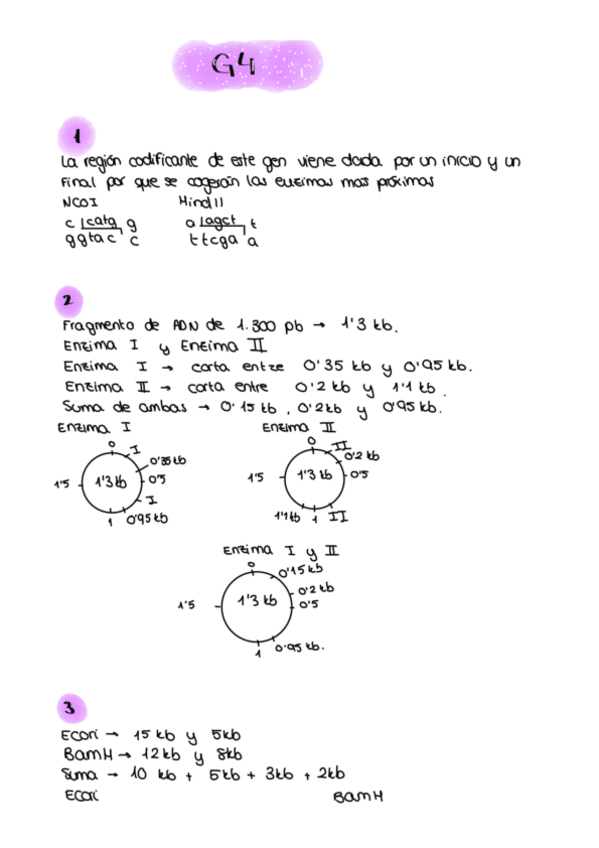 G4
1
La región codificante de este gen viene dada por un inicio y un
final por que se cogerán las enzimas mas próximas
NCOI HindII
c catg g a agct t
ggtac c ttcga a
2
Fragmento de ADN de 1.300 pb → 1'3 kb.
Enzima I y Enzima II
Enzima I → corta entre 0'35 kb y 0'95 kb.
Enzima II → corta entre 0'2 kb y 1'1 kb.
Suma de ambas → 0'15 kb, 0'2kb y 0'95 kb.
Enzima I Enzima II
0 I 0'35 kb 0'5 I 0'95 kb 1 1'5 1'3 kb
0 II 0'2 kb 0'5 II 1 1'1 kb 1'5 1'3 kb
Enzima I y II
0 0'15 kb 0'2 kb 0'5 0'95 kb. 1 1'5 1'3 kb
3
Ecori → 15 kb y 5kb
BamH → 12kb y 8kb
Suma → 10 kb + 5kb + 3kb + 2kb
Ecori BamH